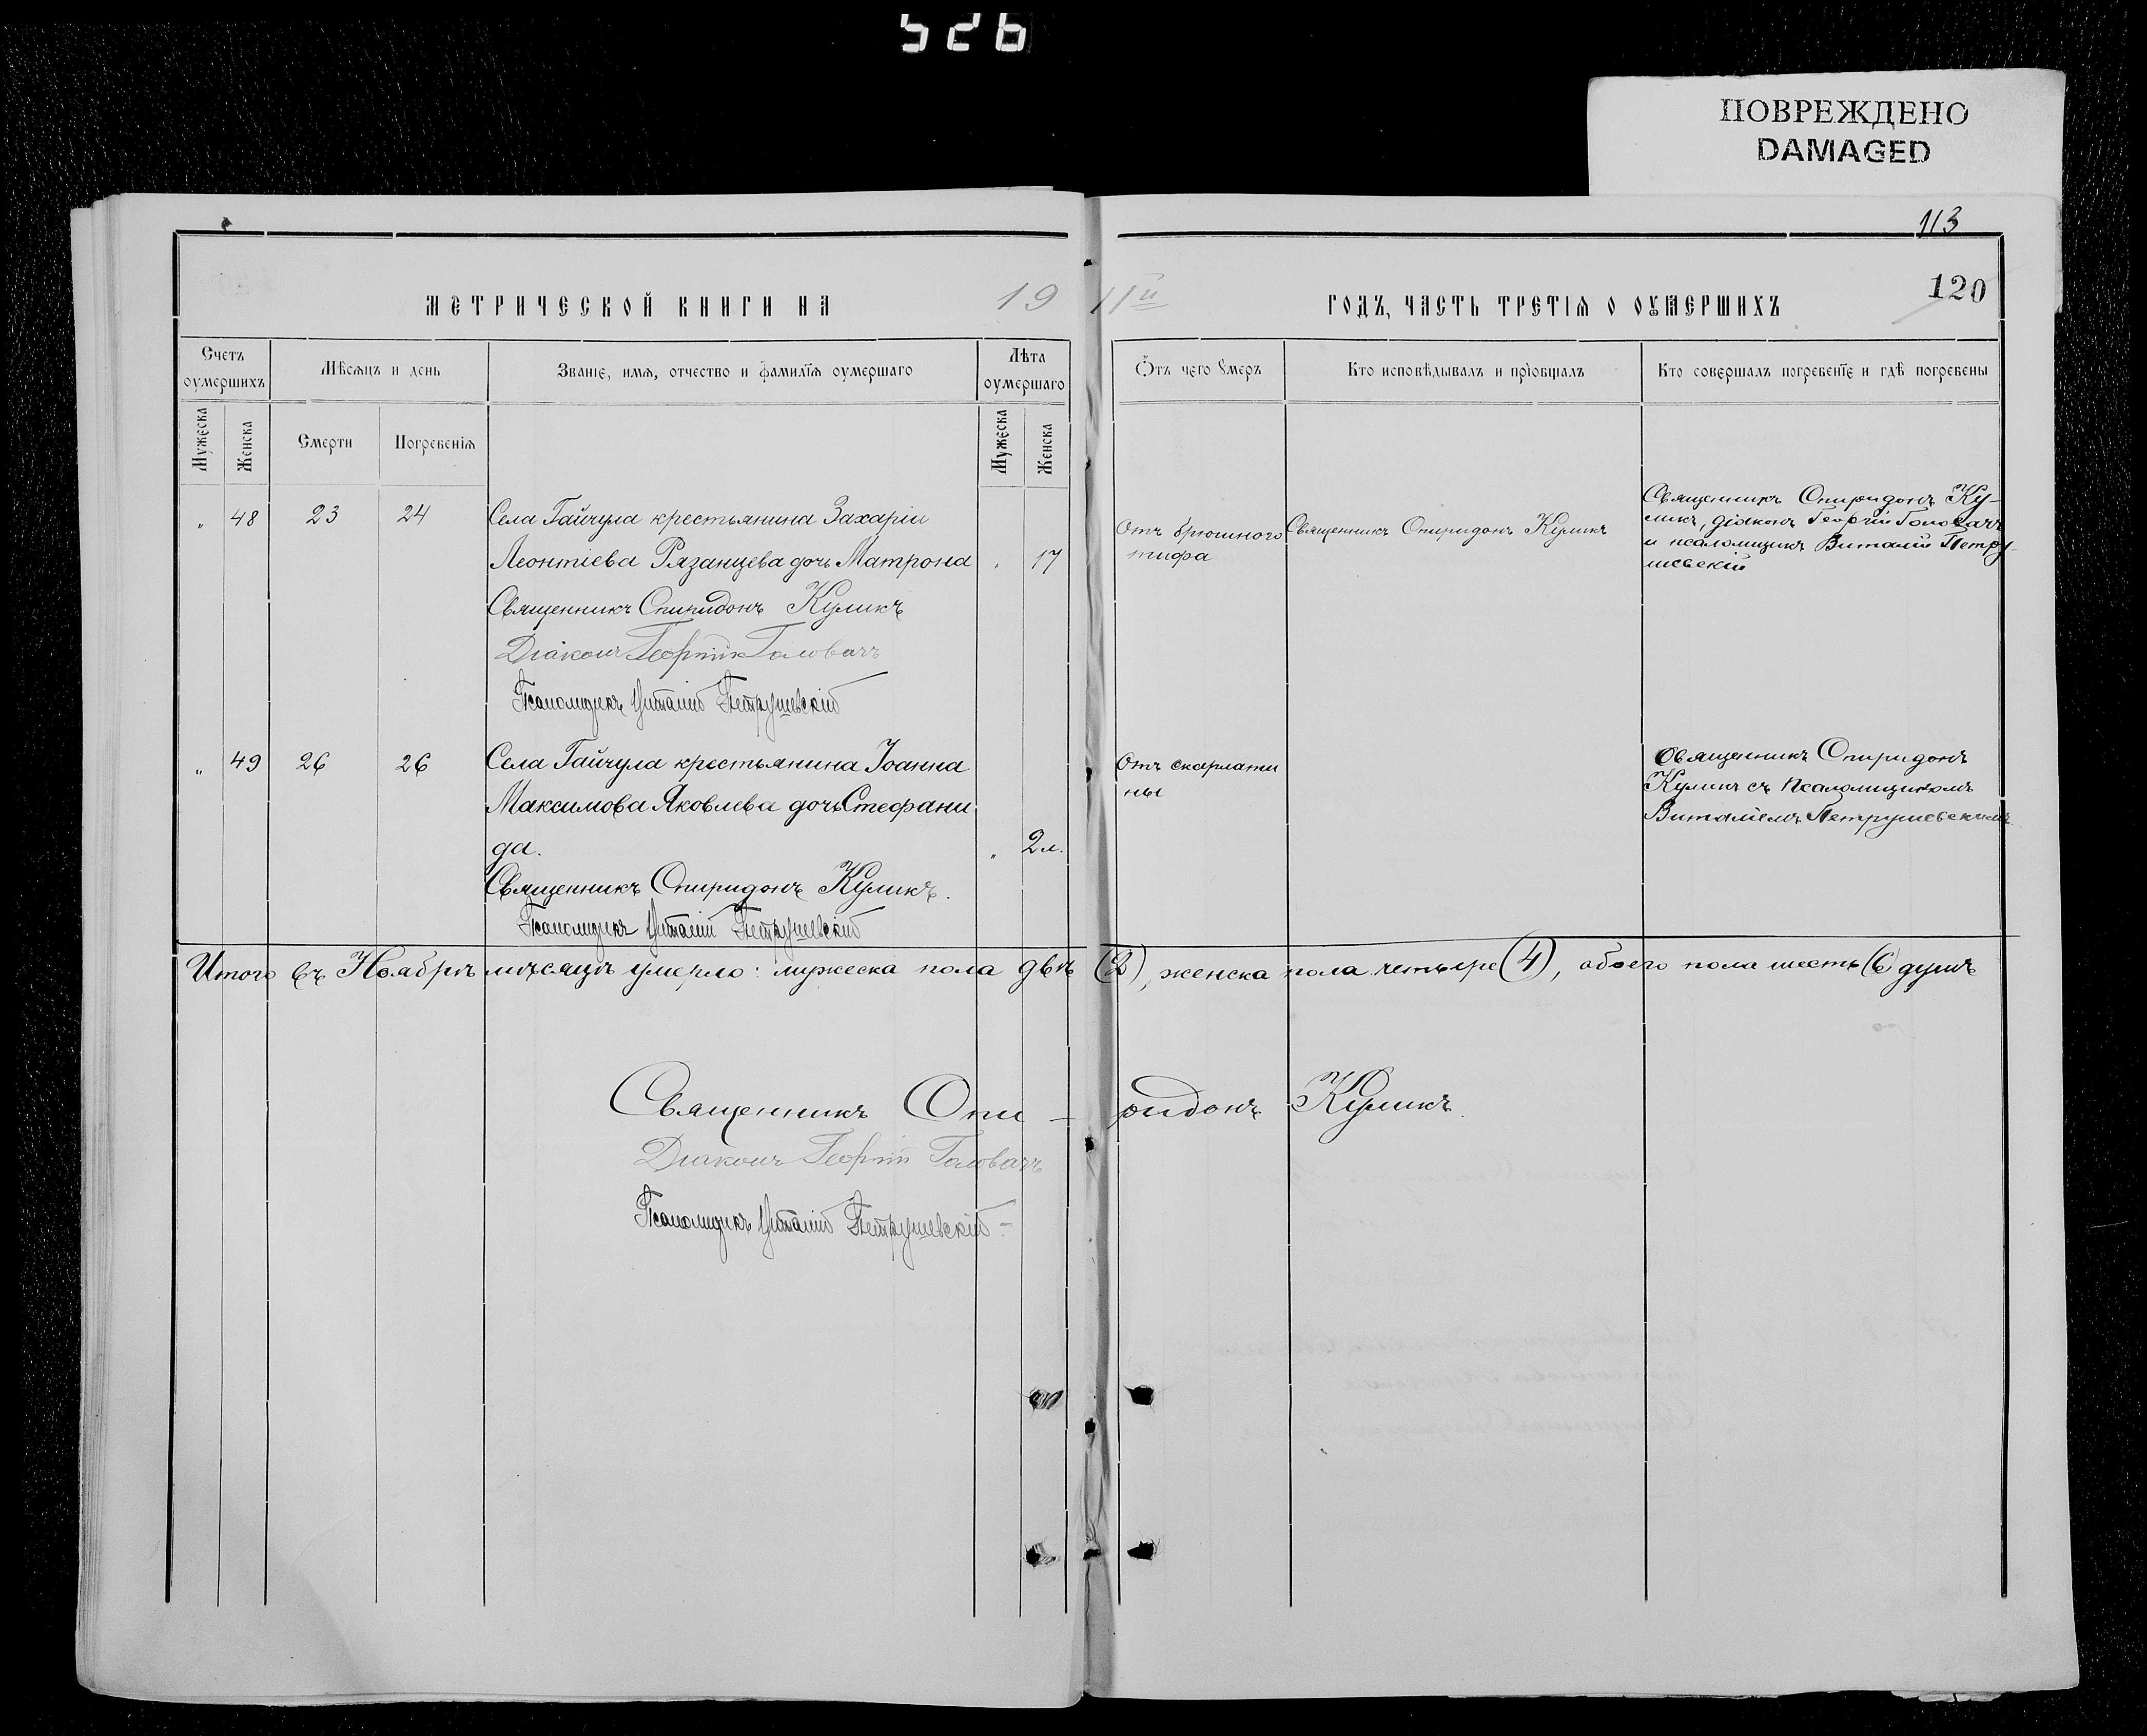 526
ПОВРЕЖДЕНО
DAMAGED
113
120
МЕТРИЧЕСКОЙ КНИГИ НА 1911й ГОДЪ, ЧАСТЬ ТРЕТІЯ О ОУМЕРШИХЪ
Счетъ оумершихъ
Мѣсяцъ и день
Званіе, имя, отчество и фамилія оумершаго
Лѣта оумершаго
Отъ чего умеръ
Кто исповѣдывалъ и пріобщалъ
Кто совершалъ погребеніе и гдѣ погребены
Мужеска
Женска
Смерти
Погребенія
Мужеска
Женска
„ 48 23 24
Села Гайчула крестьянина Захаріи
Леонтіева Рязанцева дочь Матрона „ 17
Священникъ Спиридонъ Куликъ
Діаконъ Георгій Головачъ
Псаломщикъ Виталій Петрушевскій
Отъ брюшного
тифа
Священникъ Спиридонъ Куликъ
Священникъ Спиридонъ Ку-
ликъ, діаконъ Георгій Головачъ
и псаломщикъ Виталій Петру-
шевскій
„ 49 26 26
Села Гайчула крестьянина Іоанна
Максимова Яковлева дочь Стефани
да. „ 2 л.
Священникъ Спиридонъ Куликъ.
Псаломщикъ Виталій Петрушевскій
Отъ скарлати
ны
Священникъ Спиридонъ
Куликъ съ псаломщикомъ
Виталіемъ Петрушевскимъ
Итого въ Ноябрѣ мѣсяцѣ умерло: мужеска пола двѣ (2), женска пола четыре (4), обоего пола шесть (6) душъ
Священникъ Спи-ридонъ Куликъ.
Діаконъ Георгій Головачъ
Псаломщикъ Виталій Петрушевскій